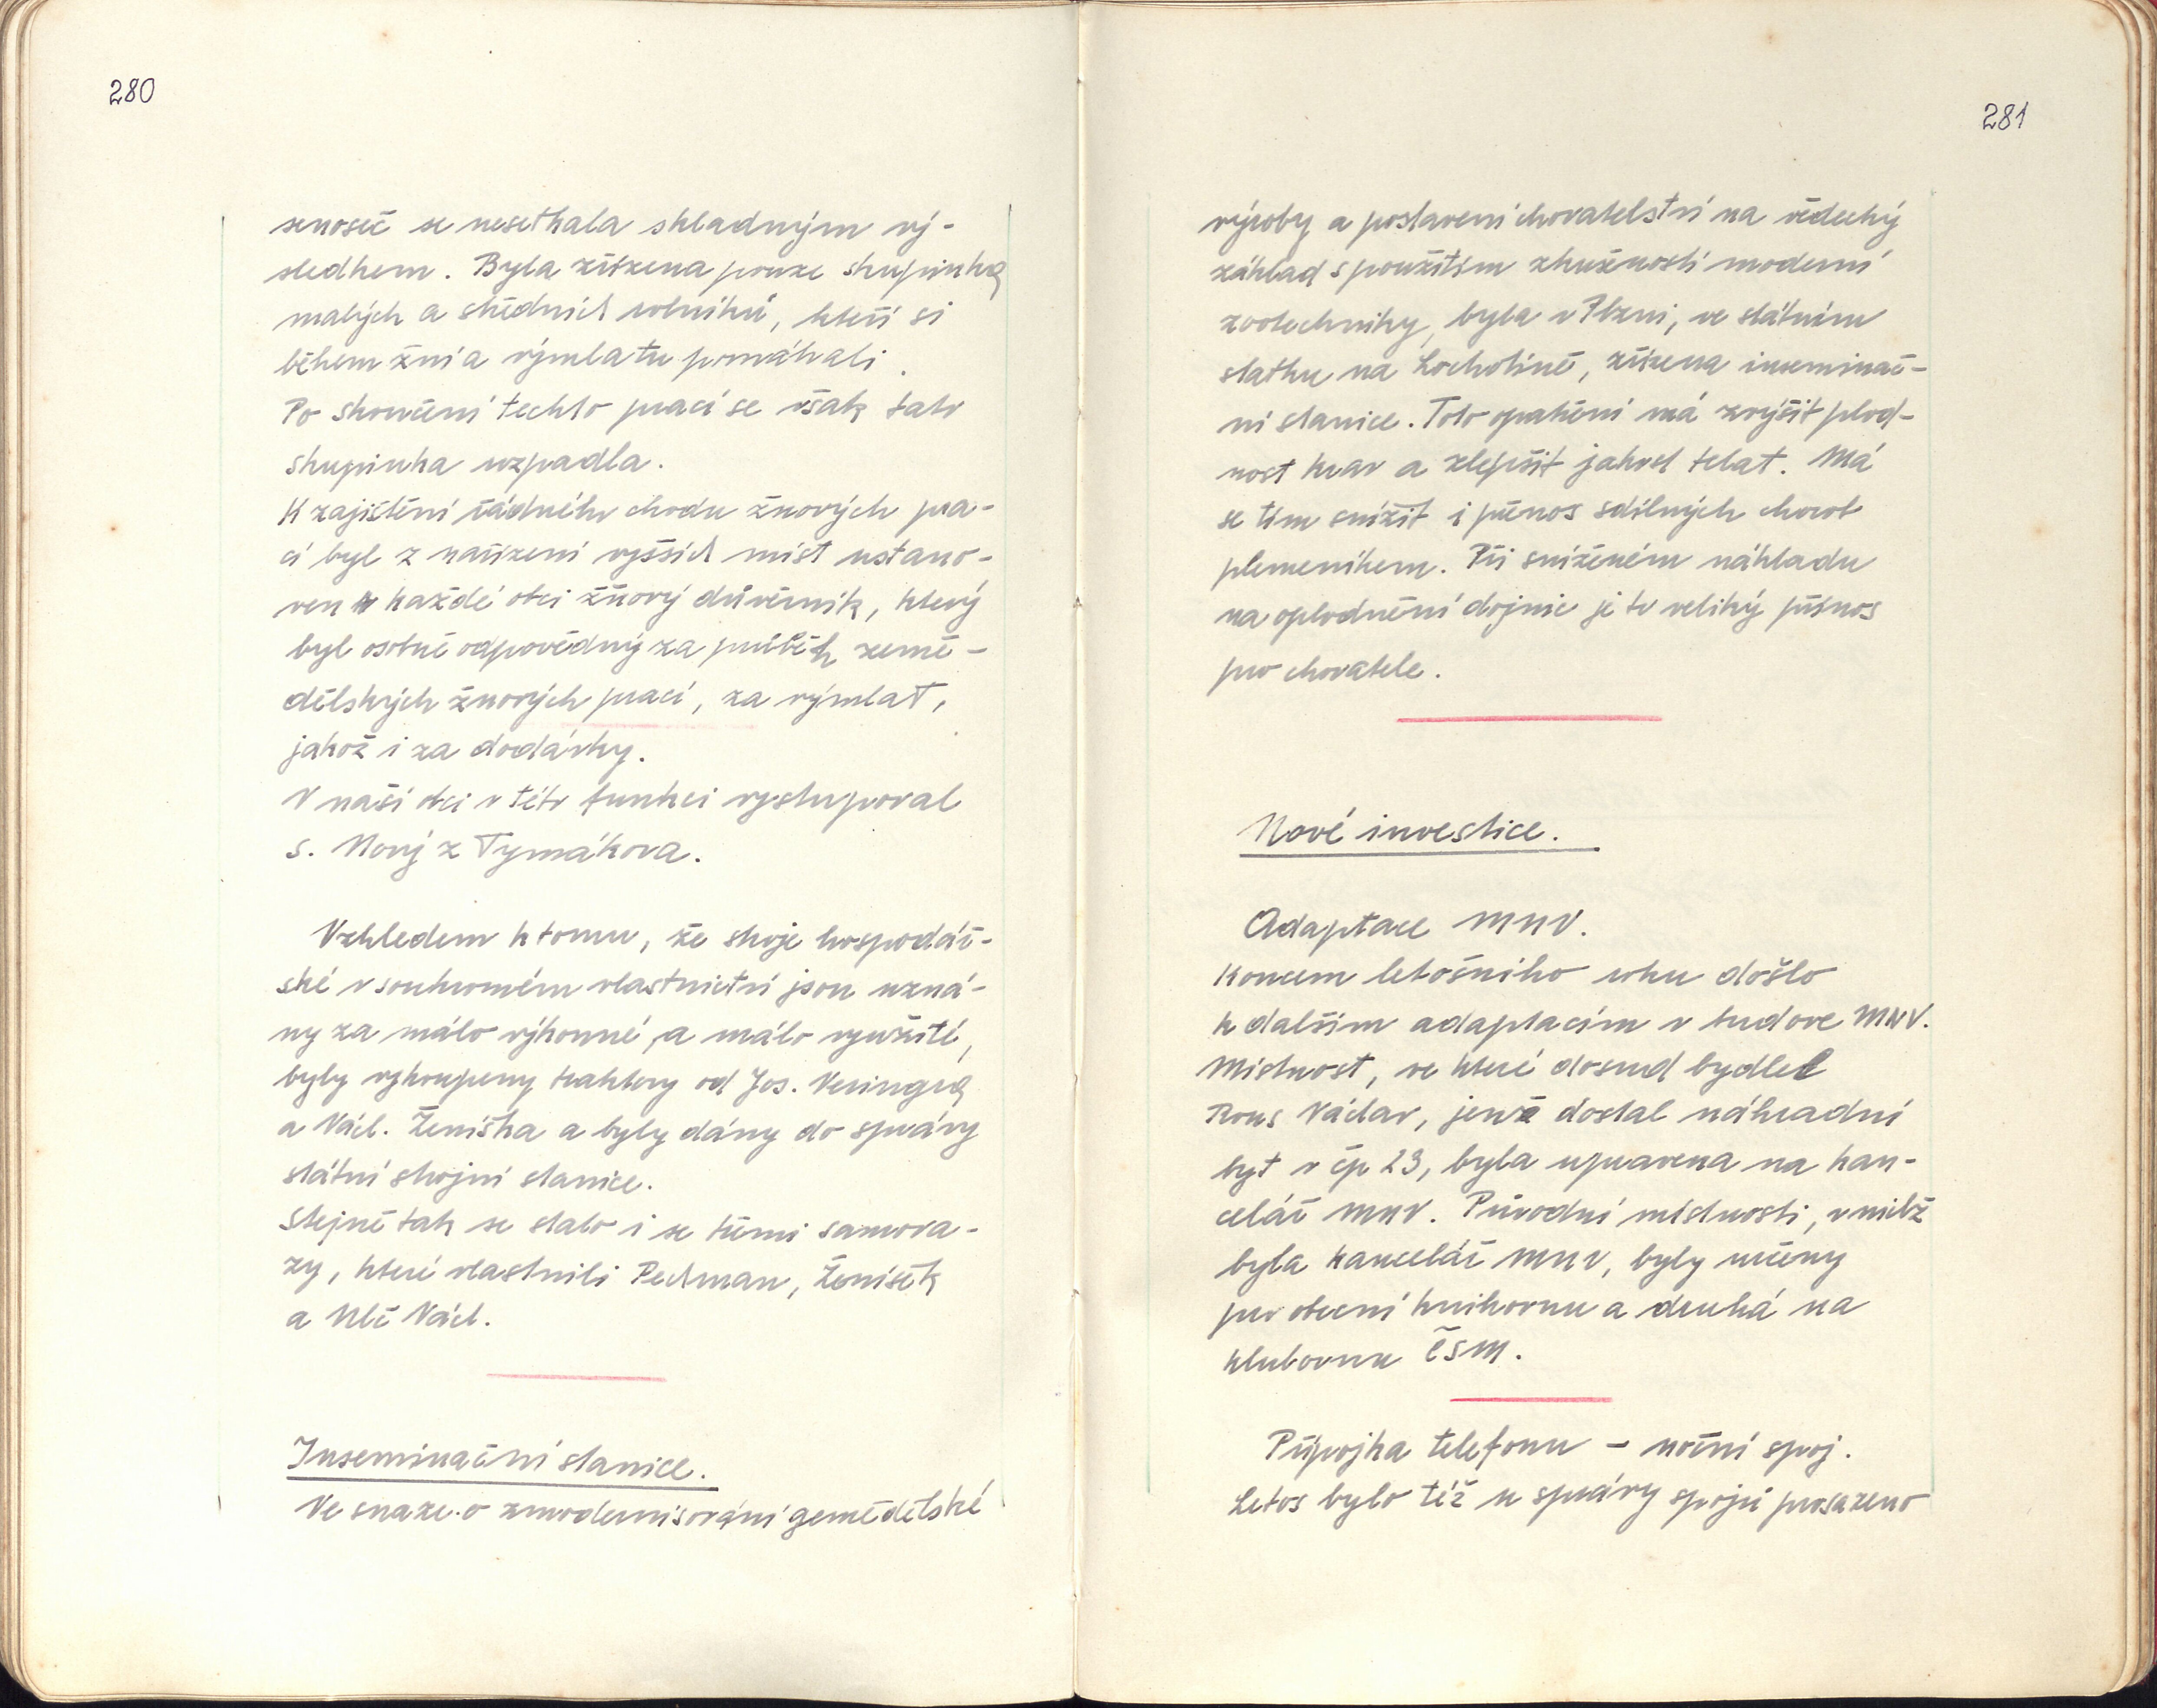 280
senoseč se nesetkala skladným vý-
sledkem. Byla zřízena pouze skupinka
malých a středních rolníků, kteří si
během žní a výmlatu pomáhali.
Po skončení techto prací se však tato
skupinka rozpadla.
K zajištění řádného chodu žňových pra-
cí byl z nařízení vyšších míst ustano-
ven každé obci žňový důvěrník, který
byl osobně odpovědný za průběh země-
dělských žňových prací, za výmlat,
jakož i za dodávky.
V naší obci v této funkci vystupoval
s. Nový z Tymákova.
Vzhledem k tomu, že stroje hospodář-
ské v soukromém vlastnictví jsou uzná-
ny za málo výkonné, a málo využité,
byly vykoupeny traktory od Jos. Veringra
a Václ. Ženíška a byly dány do správy
státní strojní stanice.
Stejně tak se stalo i se třemi samova-
zy, které vlastnili Pechman, Ženíšek
a Vlč Václ.
Inseminační stanice.
Ve snaze o zmodernisování zemědělské
281
výroby a postavení chovatelství na vědecký
základ s použitím zkušeností moderní
zootechniky, byla v Plzni, ve státním
statku na Lochotíně, zřízena inseminač-
ní stanice. Toto opatření má zvýšit plod-
nost krav a zlepšit jakost telat. Má
se tím snížit i přenos sdílných chorob
plemeníkem. Při sníženém nákladu
na oplodnění dojnic je to veliký přínos
pro chovatele.
Nové investice.
Adaptace MNV.
Koncem letošního roku došlo
k dalším adaptacím v budove MNV.
Místnost, ve které dosud bydlel
Rous Václav, jenž dostal náhradní
byt v čp 23, byla upravena na kan-
celář MNV. Původní místnosti, v nichž
byla kancelář MNV, byly určeny
pro obecní knihovnu a druhá na
klubovnu ČSM.
Přípojka telefonu - noční spoj.
Letos bylo též u správy spojů prosazeno